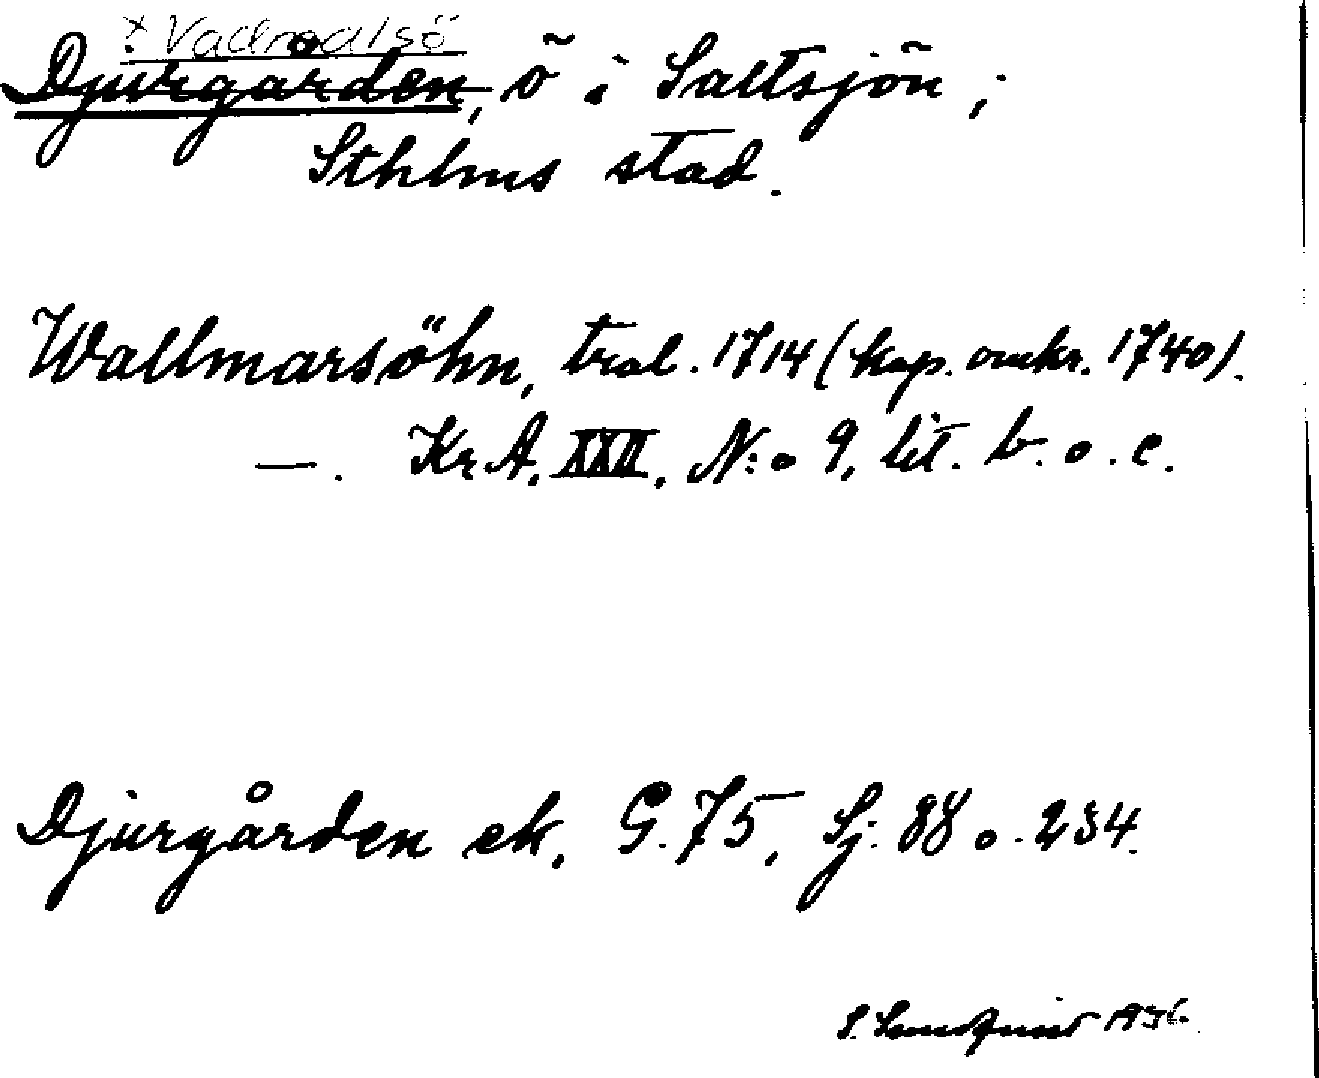 * Vadmalsö
Djurgården, ö i Saltsjön;
Sthlms stad.
Wallmarsöhn, tral. 1714 (kop. omkr. 1740).
—. Kr A, XXII, N:o 9, lit. b. o. c.
Djurgården ek. G. 75, Sj: 88 o. 234.
1936.